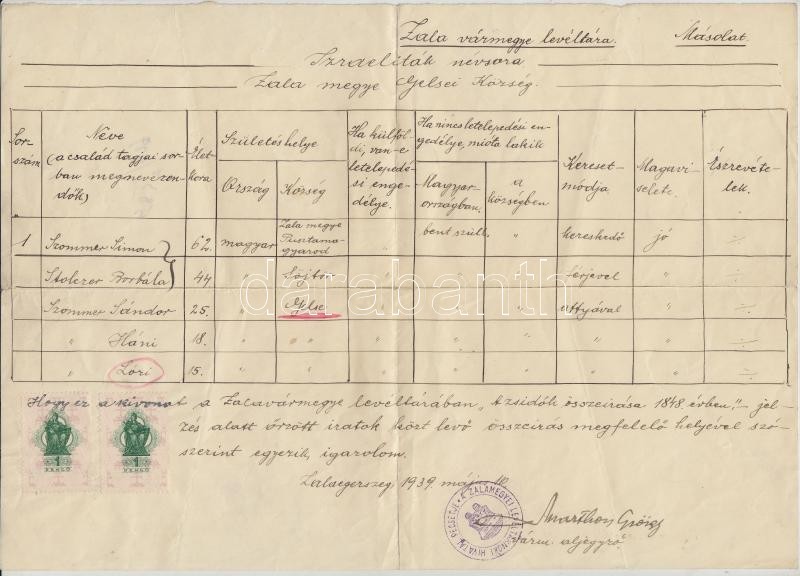 Zala vármegye levéltára. Másolat.
Izraeliták névsora
Zala megye Gelsei Község.
Sor-
szám
Neve
(a család tagjai sor-
ban megnevezen-
dők)
Élet-
kora
Születés helye
Ország
Község
Ha külföl-
di, van-e
letelepedé-
si enge-
délye.
Ha nincs letelepedési en-
gedélye, mióta lakik
Magyar-
országban.
a
községben
Kereset-
módja
Magavi-
selete.
Észrevéte-
lek.
1 Szommer Simon 62. magyar Zala megye Pusztama-
gyarod " bent szül. " kereskedő jó
Stolczer Borbála 44 " Söjtör " " " férjével "
Szommer Sándor 25. " Gelse " " " attyával "
" Háni 18. " " " " " " "
" Lori 15. " " " " " " "
Hogy ez a kivonat a Zalavármegye levéltárában „A zsidók összeirása 1848. évben," - jel-
zés alatt őrzött iratok közt levő összeirás megfelelő helyével szó-
szerint egyezik, igazolom.
Zalaegerszeg 1939. május
Marthon György
várm. aljegyző
A ZALAMEGYEI LEVÉLTÁRNOKI HIVATAL PECSÉTJE
1
PENGŐ
1
PENGŐ
darabanth